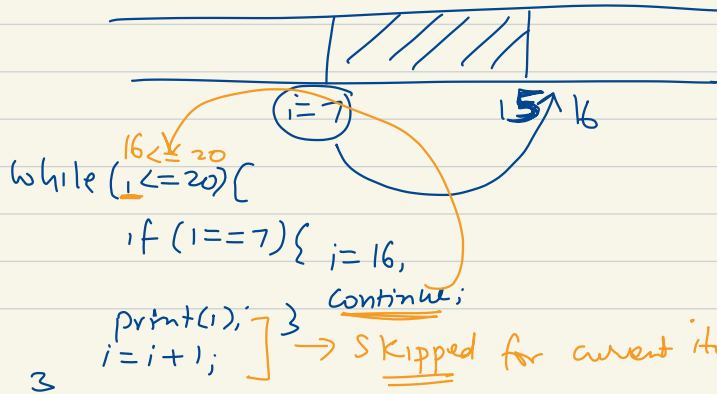 i=7 15 16
16<=20
while (i<=20){
if (i==7){ i=16,
continue;
print(i); }
i=i+1; ] → Skipped for current it
}